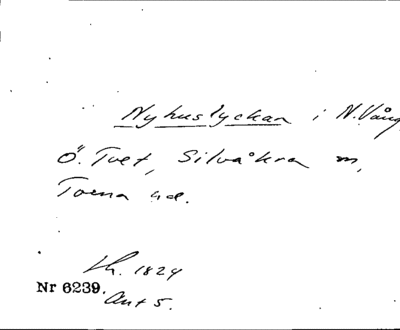 Nyhuslyckan i N. Vång
Ö. Tvet, Silvåkra
Torna hd.
1824
Nr 6239.
Akt 5.